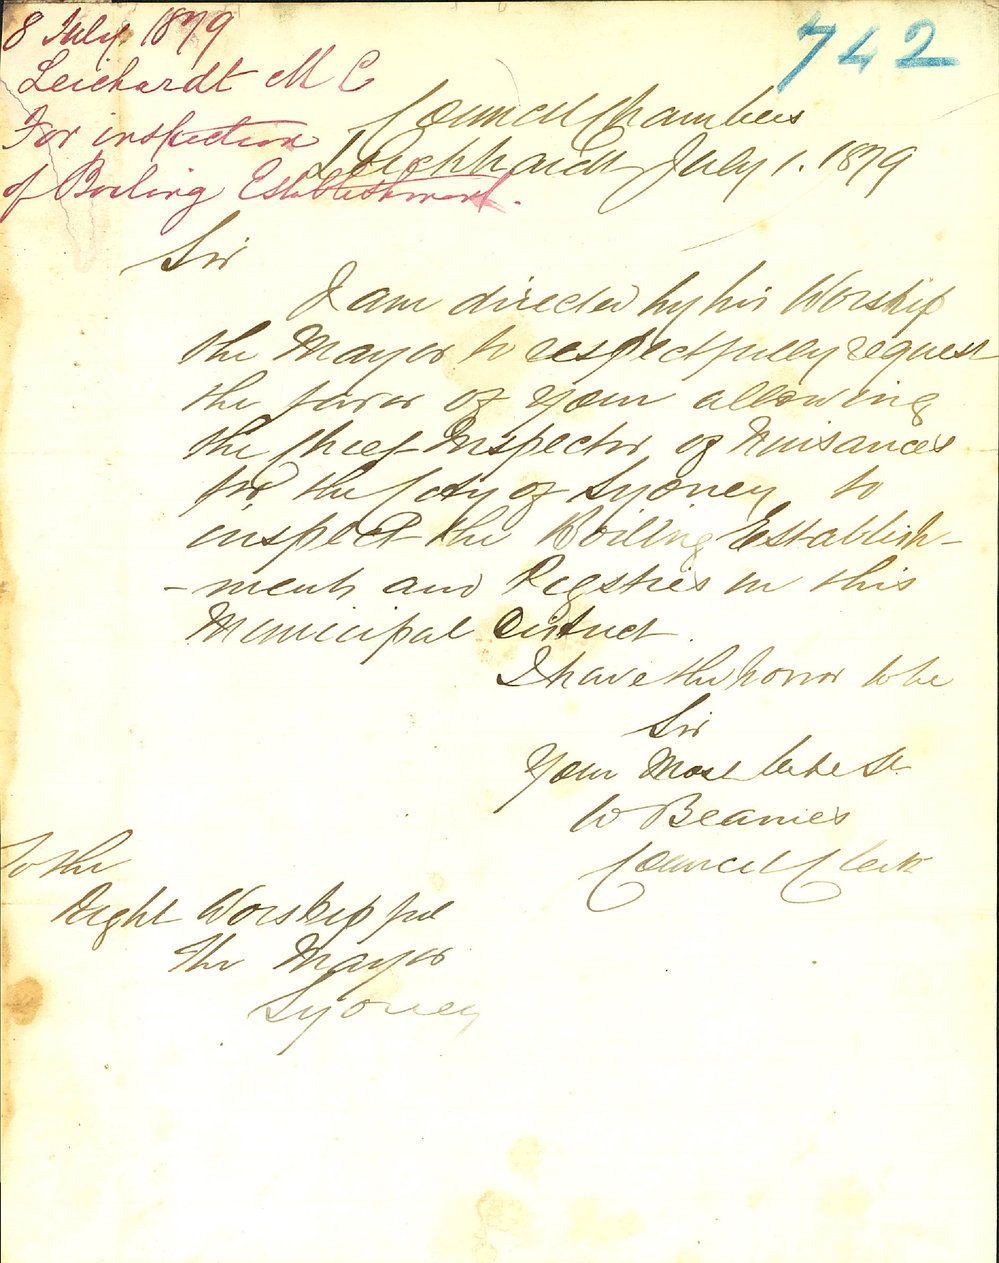 8 July 1879
Leichardt M C
For inspection
of Boiling Establishment.
742
Council Chambers
Leichhardt July 1. 1879
Sir
I am directed by his Worship
the Mayor to respectfully request
the favor of your allowing
the Chief Inspector of Nuisances
for the City of Sydney to
inspect the Boiling Establish-
-ments and Piggeries in this
Municipal District.
I have the honor to be
Sir
Your Most
W Beames
Council Clerk
To the
Right Worshipful
The Mayor
Sydney